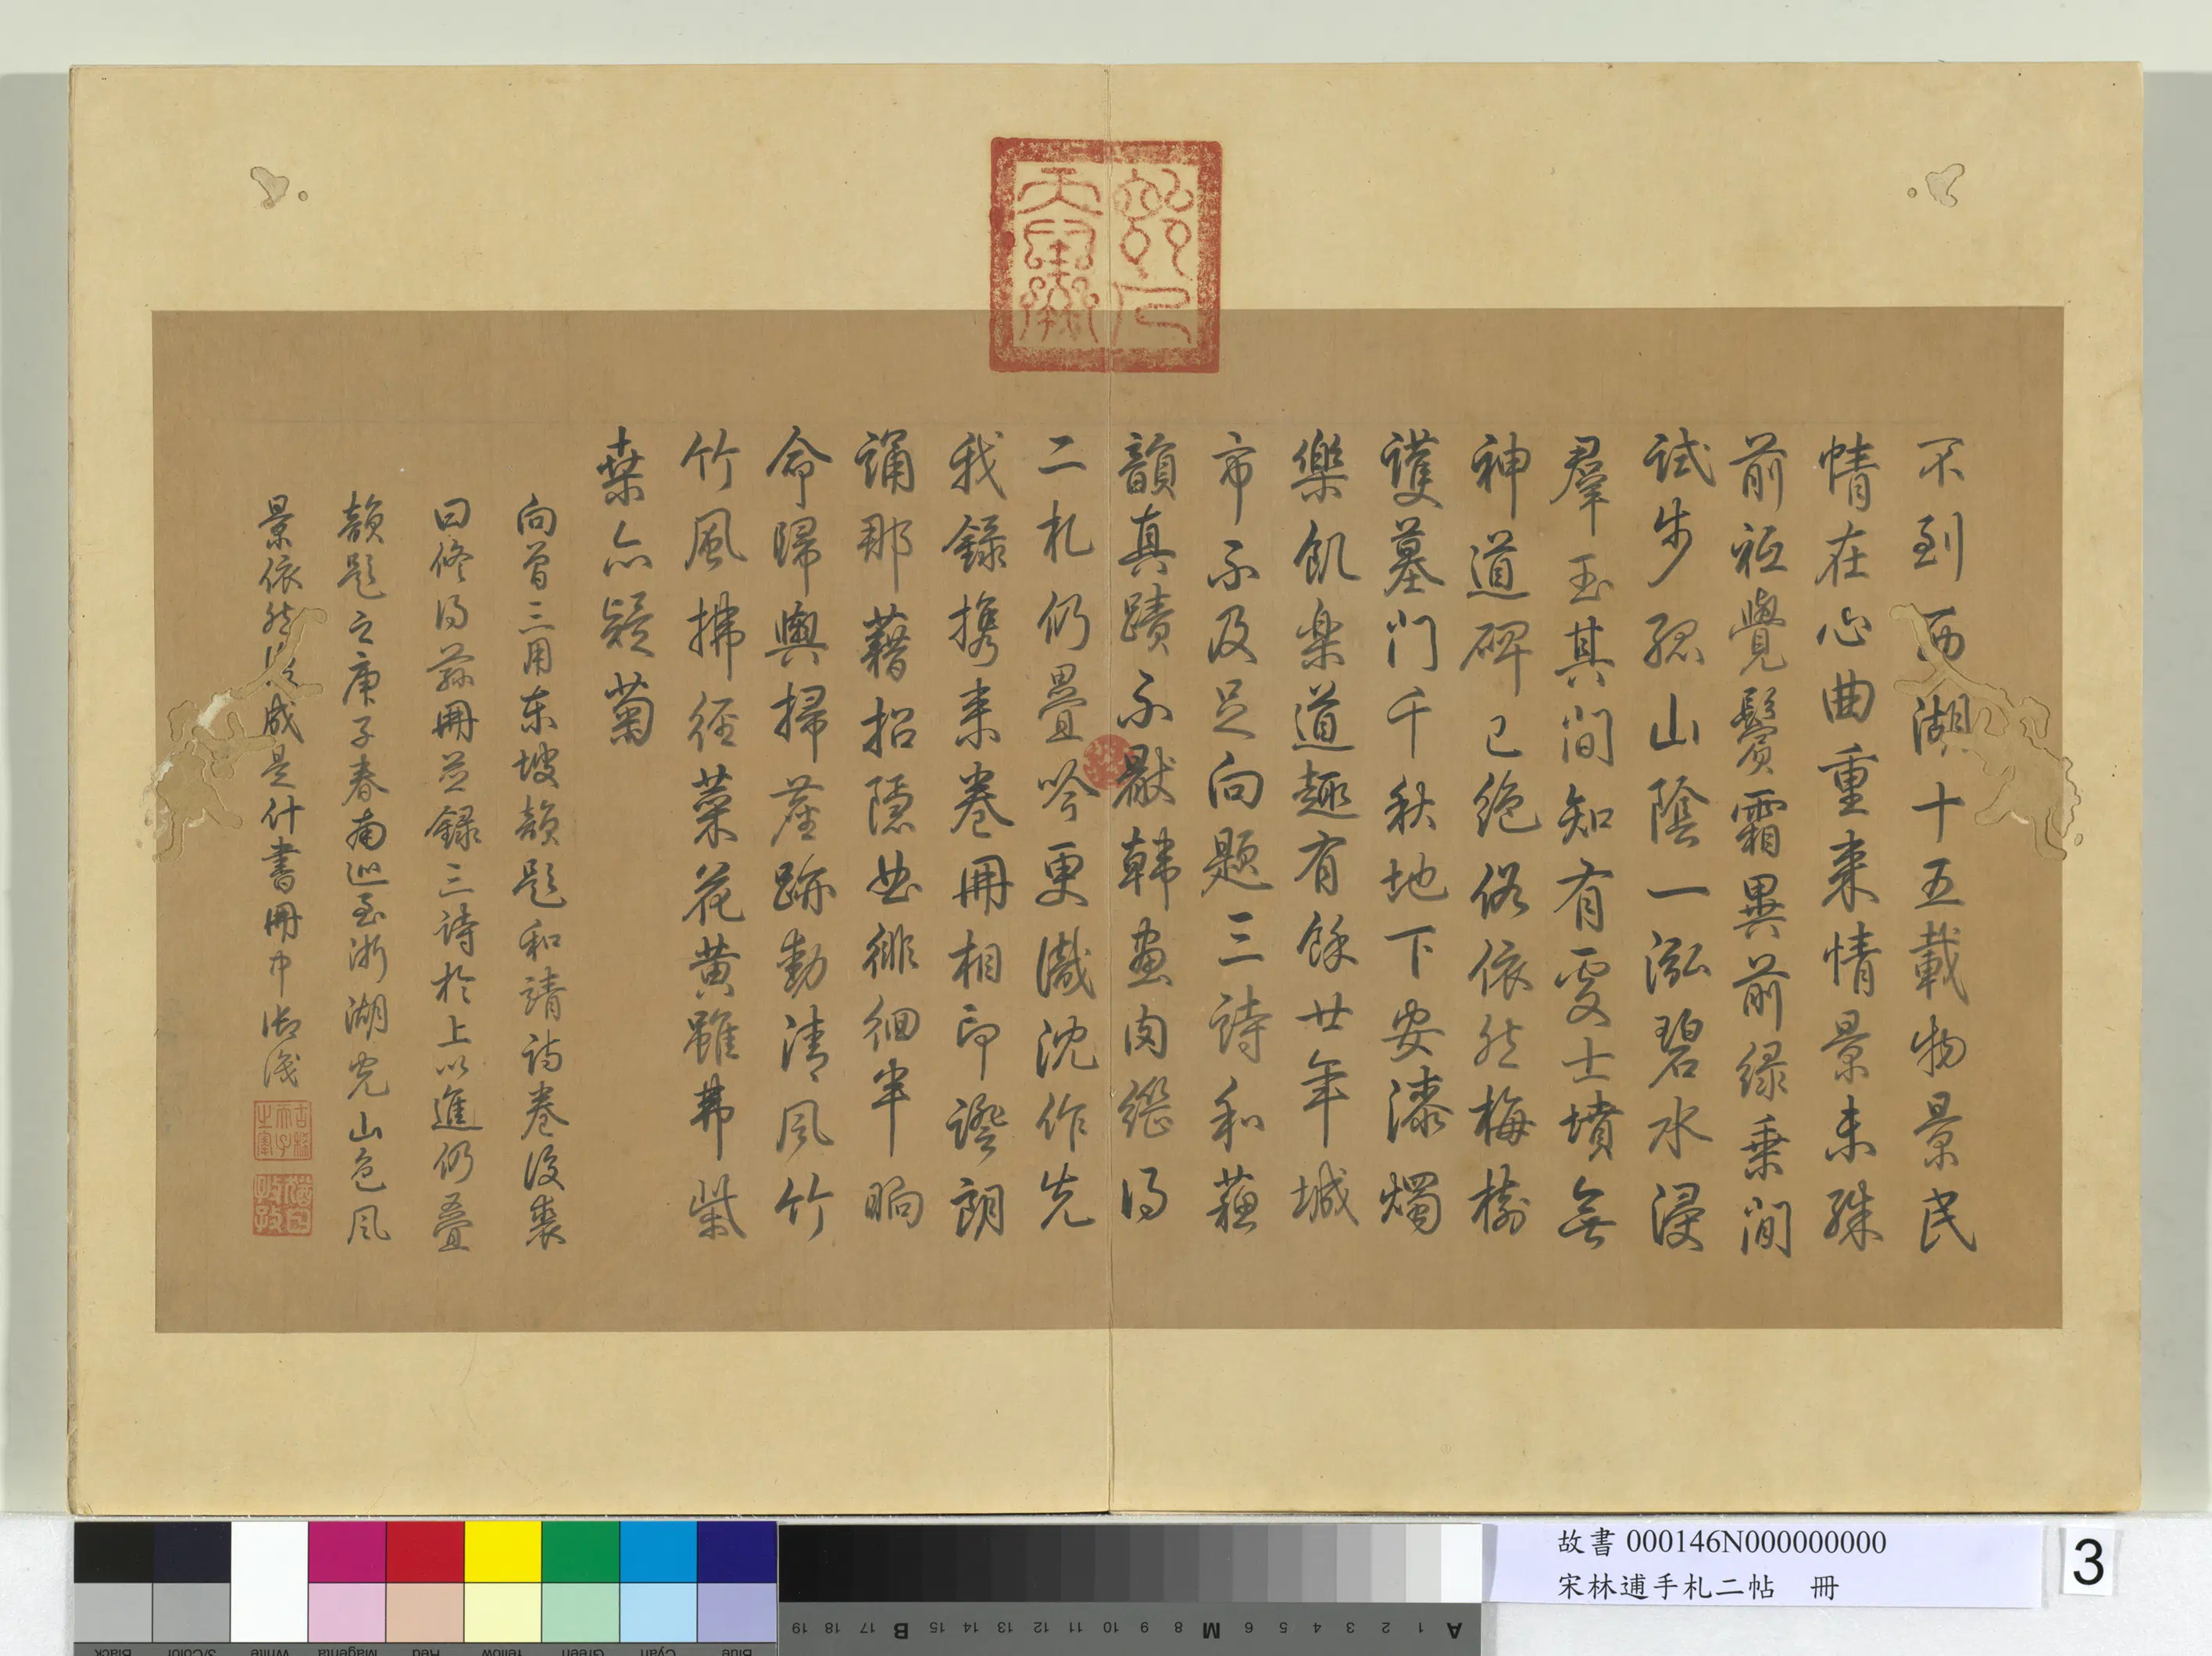 不到西湖十五載物景民
情在心曲重來情景未殊
前祗覺鬢霜異前綠乘閒
試步孤山陰一泓碧水浸
羣玉其間知有處士墳無
神道碑已絕俗依然梅樹
護墓門千秋地下安漆燭
樂飢樂道趣有餘廿年城
市不及足向題三詩和蘓
韻真蹟不猒韓畫肉繼得
二札仍疊吟更識沈作先
我錄携來卷冊相印證朗
誦那藉招隱曲徘徊半晌
命歸輿掃產跡動清風竹
竹風拂徑菜花黄雖弗柴
桒亦疑菊
向曾三用東坡韻題和靖詩卷後裘
曰修得茲冊並錄三詩於上以進仍疊
韻題之庚子春南巡至浙湖光山色風
景依然成是什書冊中御識
古稀天子之寶
猶日孜孜
故書 000146N000000000
宋林逋手札二帖 冊
3
Black 3/Color White Magenta Red Yellow Green Cyan Blue
19 18 17 B 16 15 14 13 12 11 10 9 8 M 6 5 4 3 2 1 A